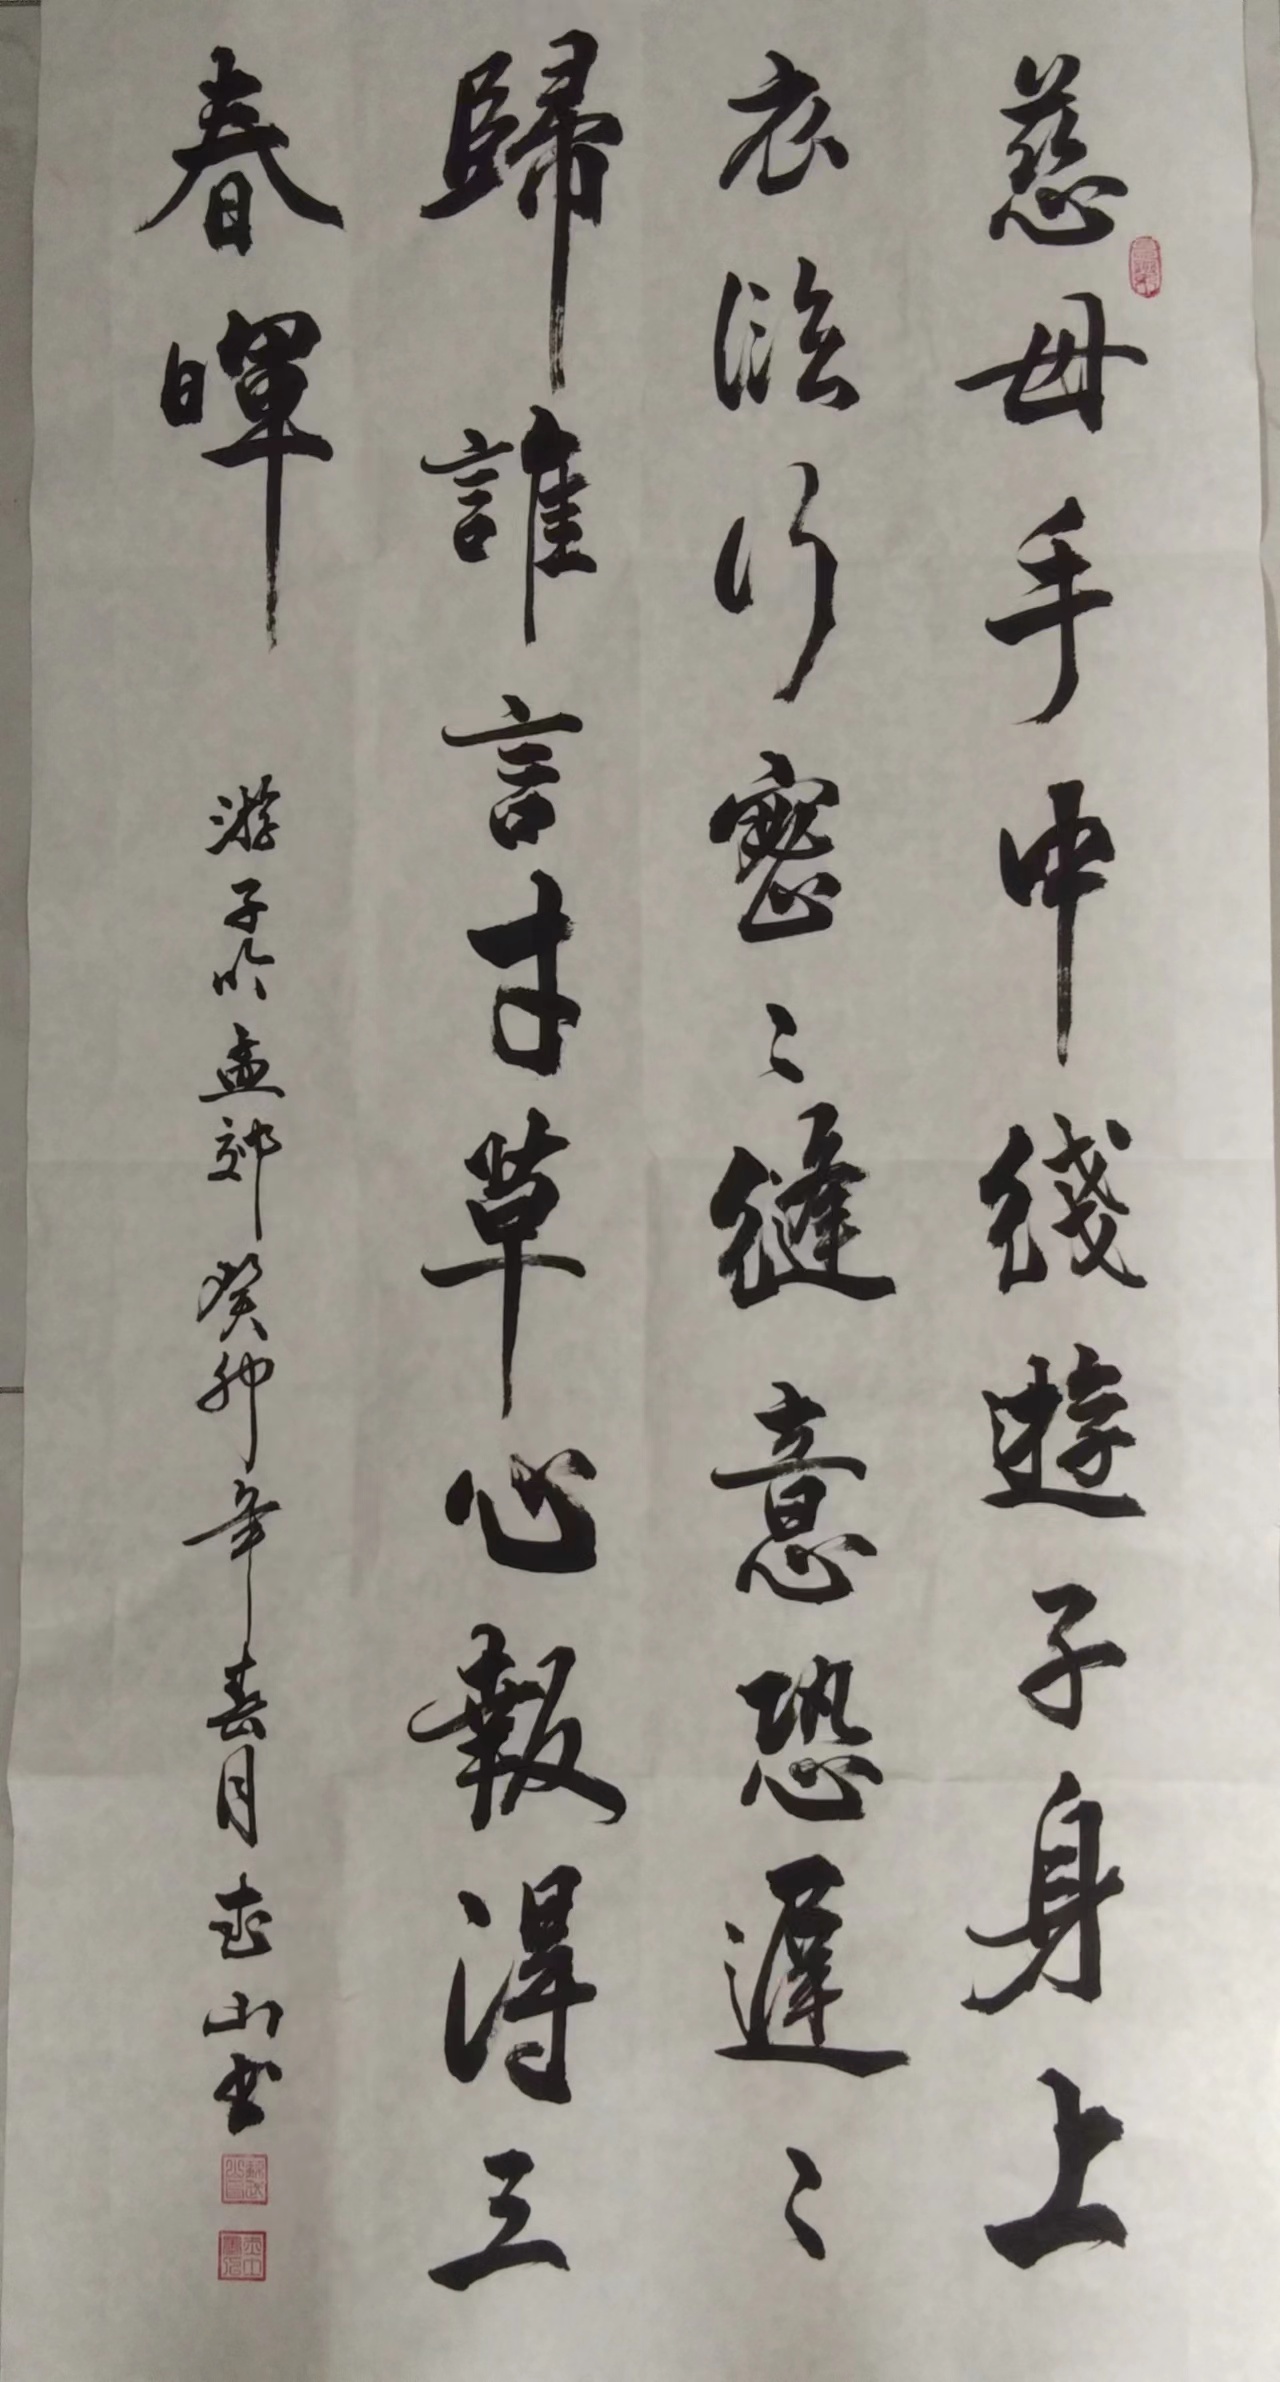 慈母手中綫遊子身上
衣臨行密〻縫意恐遲〻
歸誰言寸草心報得三
春暉
游子吟孟郊癸卯年春月武山书